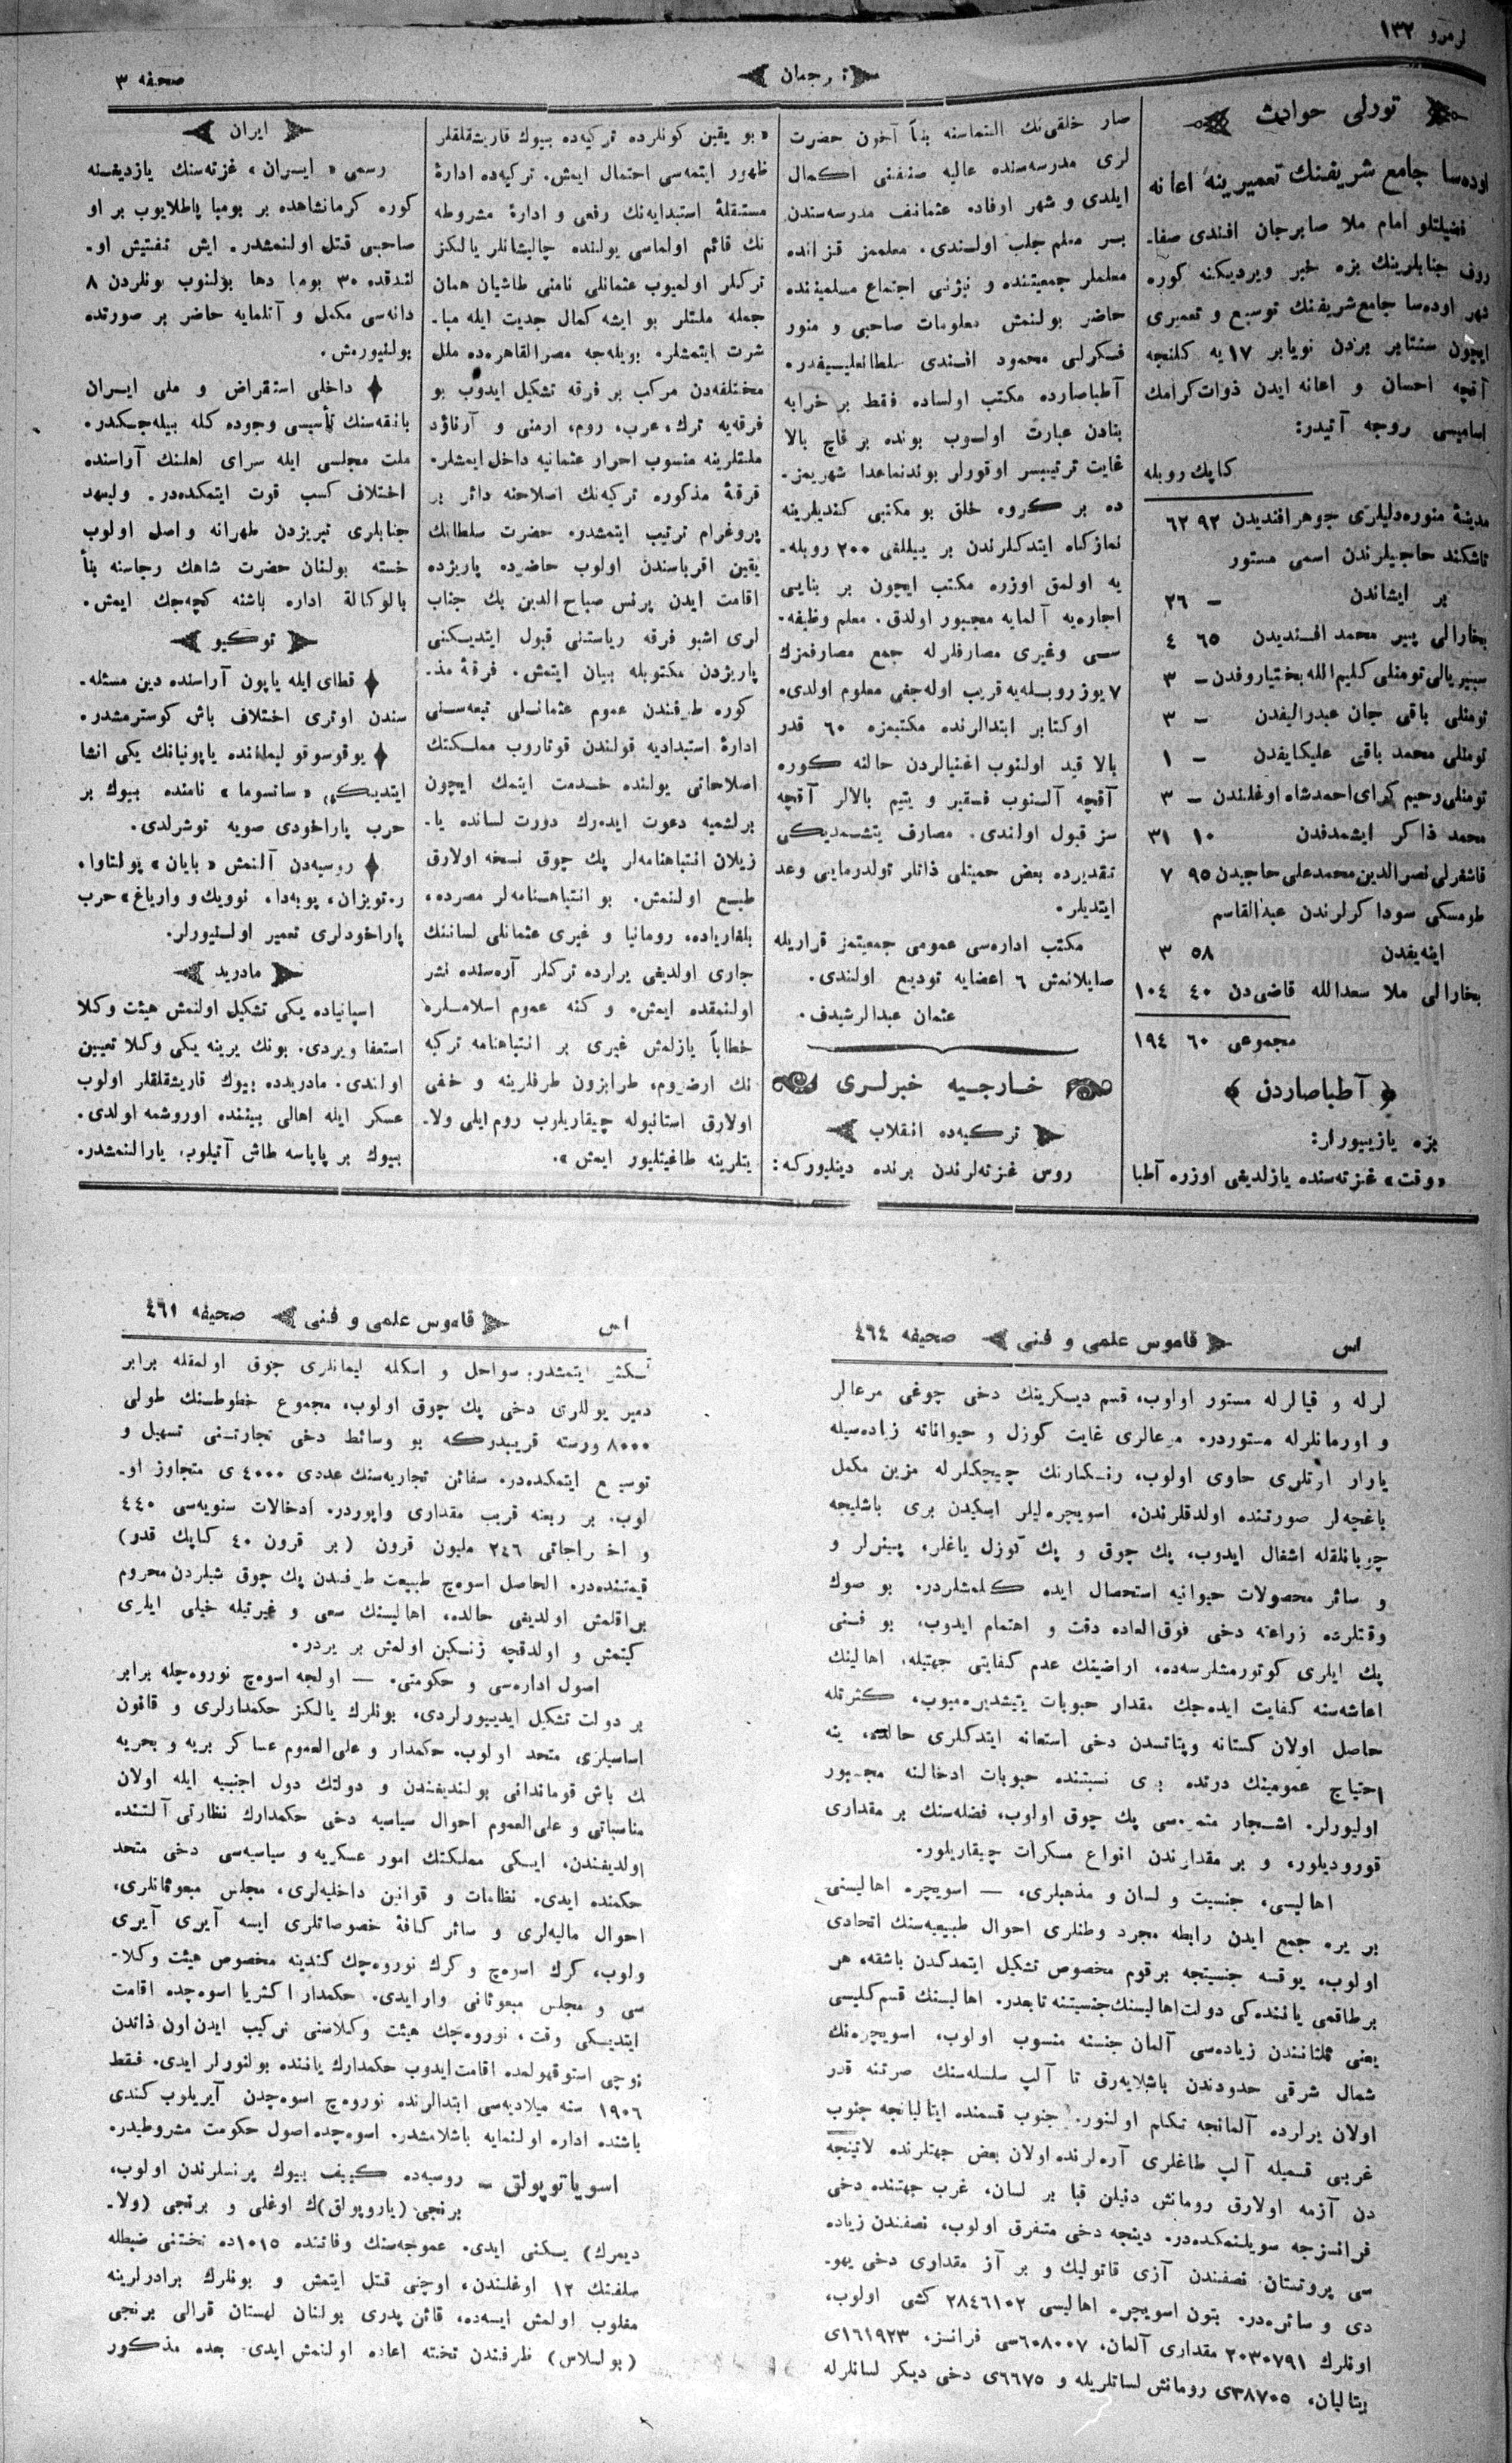 نومرو ١٣٢
ترجمان
صحفه ٣
تورلی حوادث
اودەسا جامع شریفنك تعمیرینه اعانه
فضیلتلو امام ملا صابرجان افندی صفا-
روف جنابلرینك بزه خبر ویردیكنه كوره
شهر اودەسا جامع شریفنك توسیع و تعمیری
ایچون سنتابر بردن نویابر ١٧یه كلنجه
آقچه احسان و اعانه ایدن ذوات كرامك
اسامیسی روجه آتیدر:
كاپك روبله
مدینۀ منوره دلیللری جوهر افندیدن ٩٢ ٦٢
تاشكند حاجیلرندن اسمی مستور
بر ایشاندن — ٢٦
بخارالی پیر محمد افندیدن ٦٥ ٤
سیبیریالی تومنلی كلیم الله بختیاروفدن — ٣
تومنلی باقی جان عبدرالیفدن — ٣
تومنلی محمد باقی علیكایفدن — ١
تومنلی رحیم كرای احمدشاه اوغلندن — ٣
محمد ذاكر ایشمدفدن ١٠ ٣١
قاشغرلی نصرالدین محمدعلی حاجیدن ٩٥ ٧
طومسكی سوداكرلرندن عبدالقاسم
اینه‌یفدن ٥٨ ٣
بخارالی ملا سعدالله قاضی‌دن ٤٠ ١٠٤
مجموعی ٦٠ ١٩٤
﴿ آطباصاردن ﴾
بزه یازییورلر:
«وقت» غزته‌سنده یازلدیغی اوزره آطبا
صار خلقی‌نك التماسنه بناً آخون حضرت
لری مدرسه‌سنده عالیه صنفنی اكمال
ایلدی و شهر اوفاده عثمانیف مدرسه‌سندن
بر معلم جلب اولندی. معلممز قزانده
معلملر جمعیتنده و نیژنی اجتماع مسلمیننده
حاضر بولنمش معلومات صاحبی و منور
فكرلی محمود افندی سلطانعلییفدر.
آطباصارده مكتب اولساده فقط بر خرابه
بنادن عبارت اولوب بونده بر قاچ بالا
غایت ترتیبسز اوقورلر بوندنماعدا شهریمز-
ده بر كروه خلق بو مكتبی كندیلرینه
نمازكاه ایتدكلرندن بر ییللغی ٢٠٠ روبله-
یه اولمق اوزره مكتب ایچون بر بنایی
اجاره‌یه آلمایه مجبور اولدق. معلم وظیفه-
سی وغیری مصارفلرله جمع مصارفمزك
٧یوز روبله‌یه قریب اوله‌جغی معلوم اولدی.
اوكتابر ابتدالرنده مكتبمزه ٦٠ قدر
بالا قید اولنوب اغنیالردن حالنه كوره
آقچه آلنوب فقیر و یتیم بالالر آقچه
سز قبول اولندی. مصارف یتشمدیكی
تقدیرده بعض حمیتلی ذاتلر تولدرمایی وعد
ایتدیلر.
مكتب اداره‌سی عمومی جمعیتمز قراریله
صایلانمش ٦ اعضایه تودیع اولندی.
عثمان عبدالرشیدف.
خارجیه خبرلری
تركیه‌ده انقلاب
روس غزته‌لرندن برنده دینلیوركه:
«بو یقین كونلرده تركیه‌ده بیوك قاریشقلقلر
ظهور ایتمه‌سی احتمال ایمش. تركیه‌ده ادارۀ
مستقلۀ استبدایه‌نك رفعی و ادارۀ مشروطه
نك قائم اولماسی یولنده چالیشانلر یالكز
تركلر اولمیوب عثمانلی نامنی طاشیان همان
جمله ملتلر بو ایشه كمال جدیت ایله مبا-
شرت ایتمشلر. بویله‌جه مصر القاهره‌ده ملل
مختلفه‌دن مركب بر فرقه تشكیل ایدوب بو
فرقه‌یه ترك، عرب، روم، ارمنی و آرناؤد
ملتلرینه منسوب احرار عثمانیه داخل ایمشلر.
فرقۀ مذكوره تركیه‌نك اصلاحنه دائر بر
پروغرام ترتیب ایتمشدر. حضرت سلطانك
یقین اقرباسندن اولوب حاضرده پاریژده
اقامت ایدن پرنس صباح الدین بك جناب
لری اشبو فرقه ریاستنی قبول ایتدیكنی
پاریژدن مكتوبله بیان ایتمش. فرقۀ مذ-
كوره طرفندن عموم عثمانلی تبعه‌سنی
ادارۀ استبدادیه قولندن قوتاروب مملكتك
اصلاحاتی یولنده خدمت ایتمك ایچون
برلشمیه دعوت ایده‌رك دورت لسانده یا-
زیلان انتباهنامه‌لر پك چوق نسخه اولارق
طبع اولنمش. بو انتباهنامه‌لر مصرده،
بلغاریاده، رومانیا و غیری عثمانلی لساننك
جاری اولدیغی یرلرده تركلر آره‌سنده نشر
اولنمقده ایمش. وكنه عموم اسلاملره
خطاباً یازلمش غیری بر انتباهنامه تركیه
نك ارضروم، طرابزون طرفلرینه و خفی
اولارق استانبوله چیقاریلوب روم ایلی ولا-
یتلرینه طاغیتلیور ایمش».
ایران
رسمی «ایران» غزته‌سنك یازدیغنه
كوره كرمانشاهده بر بومبا پاطلایوب بر او
صاحبی قتل اولنمشدر. ایش تفتیش او-
لندقده ٣٠ بومبا دها بولنوب بونلردن ٨
دانه‌سی مكمل و آتلمایه حاضر بر صورتده
بولنیورمش.
داخلی استقراض و ملی ایران
بانقه‌سنك تأسیسی وجوده كله بیله‌جكدر.
ملت مجلسی ایله سرای اهلنك آراسنده
اختلاف كسب قوت ایتمكده‌در. ولیعهد
جنابلری تبریزدن طهرانه واصل اولوب
خسته بولنان حضرت شاهك رجاسنه بنأ
بالوكالة اداره باشنه كچه‌جك ایمش.
توكیو
قطای ایله یاپون آراسنده دین مسئله-
سندن اوتری اختلاف باش كوسترمشدر.
یوقوسوقو لیماننده یاپونیانك یكی انشا
ایتدیكی «ساتسوما» نامنده بیوك بر
حرب پاراخودی صویه توشرلدی.
روسیه‌دن آلنمش «بایان» پولتاوا،
ره‌تویزان، پوبه‌دا، نوویك و واریاغ» حرب
پاراخودلری تعمیر اولنیورلر.
مادرید
اسپانیاده یكی تشكیل اولنمش هیئت وكلا
استعفا ویردی. بونك یرینه یكی وكلا تعیین
اولندی. مادریدده بیوك قاریشقلقلر اولوب
عسكر ایله اهالی بیننده اوروشمه اولدی.
بیوك بر پاپاسه طاش آتیلوب، یارالنمشدر.
اس
قاموس علمی و فنی
صحیفه ٤٦٤
لرله و قیالرله مستور اولوب، قسم دیكرینك دخی چوغی مرعالر
و اورمانلرله مستوردر. مرعالری غایت كوزل و حیواناته زیاده‌سیله
یارار اوتلری حاوی اولوب، رنكارنك چیچكلرله مزین مكمل
باغچه‌لر صورتنده اولدقلرندن، اسویچره‌لیلر اسكیدن بری باشلیجه
چوبانلقله اشغال ایدوب، پك چوق و پك كوزل یاغلر، پینرلر و
و سائر محصولات حیوانیه استحصال ایده كلمشلردر. بو صوك
وقتلرده زراعته دخی فوق‌العاده دقت و اهتمام ایدوب، بو فنی
پك ایلری كوتورمشلرسه‌ده، اراضینك عدم كفایتی جهتیله، اهالینك
اعاشه‌سنه كفایت ایده‌جك مقدار حبوبات یتیشدیره‌میوب، كثرتله
حاصل اولان كستانه وپتاتسدن دخی استعانه ایتدكلری حالده، ینه
احتیاج عمومینك درتده بری نسبتنده حبوبات ادخالنه مجبور
اولیورلر. اشجار مثمره‌سی پك چوق اولوب، فضله‌سنك بر مقداری
قورودیلور، و بر مقدارندن انواع مسكرات چیقاریلور.
اهالیسی، جنسیت و لسان و مذهبلری. — اسویچره اهالیسنی
بر یره جمع ایدن رابطه مجرد وطنلری احوال طبیعیه‌سنك اتحادی
اولوب، یوقسه جنسیتجه بر قوم مخصوص تشكیل ایتمدكدن باشقه، هر
برطاقمی یاننده‌كی دولت اهالیسنك جنسیتنه تابعدر. اهالیسنك قسم كلیسی
یعنی ثلثانندن زیاده‌سی آلمان جنسنه منسوب اولوب، اسویچره‌نك
شمال شرقی حدودندن باشلایه‌رق تا آلپ سلسله‌سنك صرتنه قدر
اولان یرلرده آلمانجه تكلم اولنور. جنوب قسمنده ایتالیانجه جنوب
غربی قسمیله آلپ طاغلری آره‌لرنده اولان بعض جهتلرنده لاتینجه
دن آزمه اولارق رومانش دنیلن قبا بر لسان، غرب جهتنده دخی
فرانسزجه سویلنمكده‌در. دینجه دخی متفرق اولوب، نصفندن زیاده
سی پروتستان نصفندن آزی قاتولیك و بر آز مقداری دخی یهو-
دی و سائره‌در. بتون اسویچره اهالیسی ٢٨٤٦١٠٢ كشی اولوب،
اونلرك ٢٠٣٠٧٩١ مقداری آلمان، ٦٠٨٠٠٧سی فرانسز، ١٦١٩٢٣ی
ایتالیان، ٣٨٧٠٥ی رومانش لسانلریله و ٦٦٧٥ی دخی دیكر لسانلرله
اس
قاموس علمی و فنی
صحیفه ٤٦١
تكثیر ایتمشدر. سواحل و اسكله لیمانلری چوق اولمقله برابر
دمیر یوللری دخی پك چوق اولوب، مجموع خطوطنك طولی
٨٠٠٠ ورسته قریبدركه بو وسائط دخی تجارتنی تسهیل و
توسیع ایتمكده‌در. سفائن تجاریه‌سنك عددی ٤٠٠٠ی متجاوز او-
لوب، بر ربعنه قریب مقداری واپوردر. ادخالات سنویه‌سی ٤٤٠
و اخراجاتی ٢٤٦ ملیون قرون (بر قرون ٤٠ كاپك قدر)
قیمتنده‌در. الحاصل اسوه‌چ طبیعت طرفندن پك چوق شیلردن محروم
براقلمش اولدیغی حالده، اهالیسنك سعی و غیرتیله خیلی ایلری
كیتمش و اولدقچه زنكین اولمش بر یردر.
اصول اداره‌سی و حكومتی. — اولجه اسوه‌چ نوروه‌چله برابر
بر دولت تشكیل ایدییورلردی، بونلرك یالكز حكمدارلری و قانون
اساسیلری، متحد اولوب، حكمدار و علی‌العموم عساكر بریه و بحریه
نك باش قوماندانی بولندیغندن و دولتك دول اجنبیه ایله اولان
مناسباتی و علی‌العموم احوال سیاسیه دخی حكمدارك نظارتی آلتنده
اولدیغندن، ایكی مملكتك امور عسكریه و سیاسیه‌سی دخی متحد
حكمنده ایدی. نظامات و قوانین داخلیه‌لری، مجلس مبعوثانلری،
احوال مالیه‌لری و سائر كافۀ خصوصاتلری ایسه آیری آیری
ولوب، كرك اسوه‌چ و كرك نوروه‌چك كندینه مخصوص هیئت وكلا-
سی و مجلس مبعوثانی وار ایدی. حكمدار اكثریا اسوه‌چده اقامت
ایتدیكی وقت، نوروه‌چك هیئت وكلاسنی تركیب ایدن اون ذاتدن
اوچی استوقهولمده اقامت ایدوب حكمدارك یاننده بولنورلر ایدی. فقط
١٩٠٦ سنه میلادیه‌سی ابتدالرنده نوروه‌چ اسوه‌چدن آیریلوب كندی
باشنده اداره اولنمایه باشلامشدر. اسوه‌چده اصول حكومت مشروطیدر.
اسویاتوپولق — روسیه‌ده كییف بیوك پرنسلرندن اولوب،
برنجی (یاروپولق)ك اوغلی و برنجی (ولا-
دیمرك) یكنی ایدی. عموجه‌سنك وفاتنده ١٠١٥ده تختنی ضبطله
سلفنك ١٢ اوغلندن، اوچنی قتل ایتمش و بونلرك برادرلرینه
مغلوب اولمش ایسه‌ده، قائن پدری بولنان لهستان قرالی برنجی
(بولسلاس) طرفندن تخته اعاده اولنمش ایدی. بعده مذكور